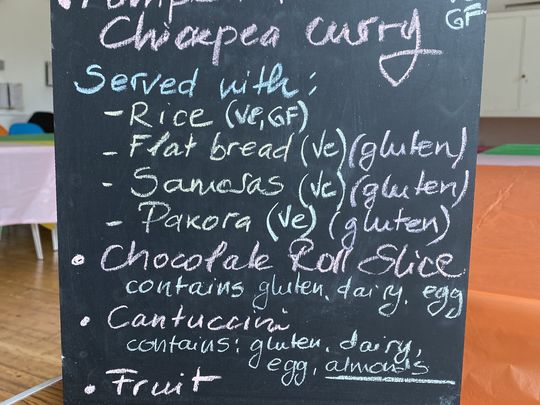 Chickpea curry
GF
Served with:
- Rice (Ve, GF)
- Flat bread (Ve) (gluten)
- Samosas (Ve) (gluten)
- Pakora (Ve) (gluten)
• Chocolate Roll Slice
contains gluten, dairy, egg
• Cantuccini
contains: gluten, dairy,
egg, almonds
• Fruit